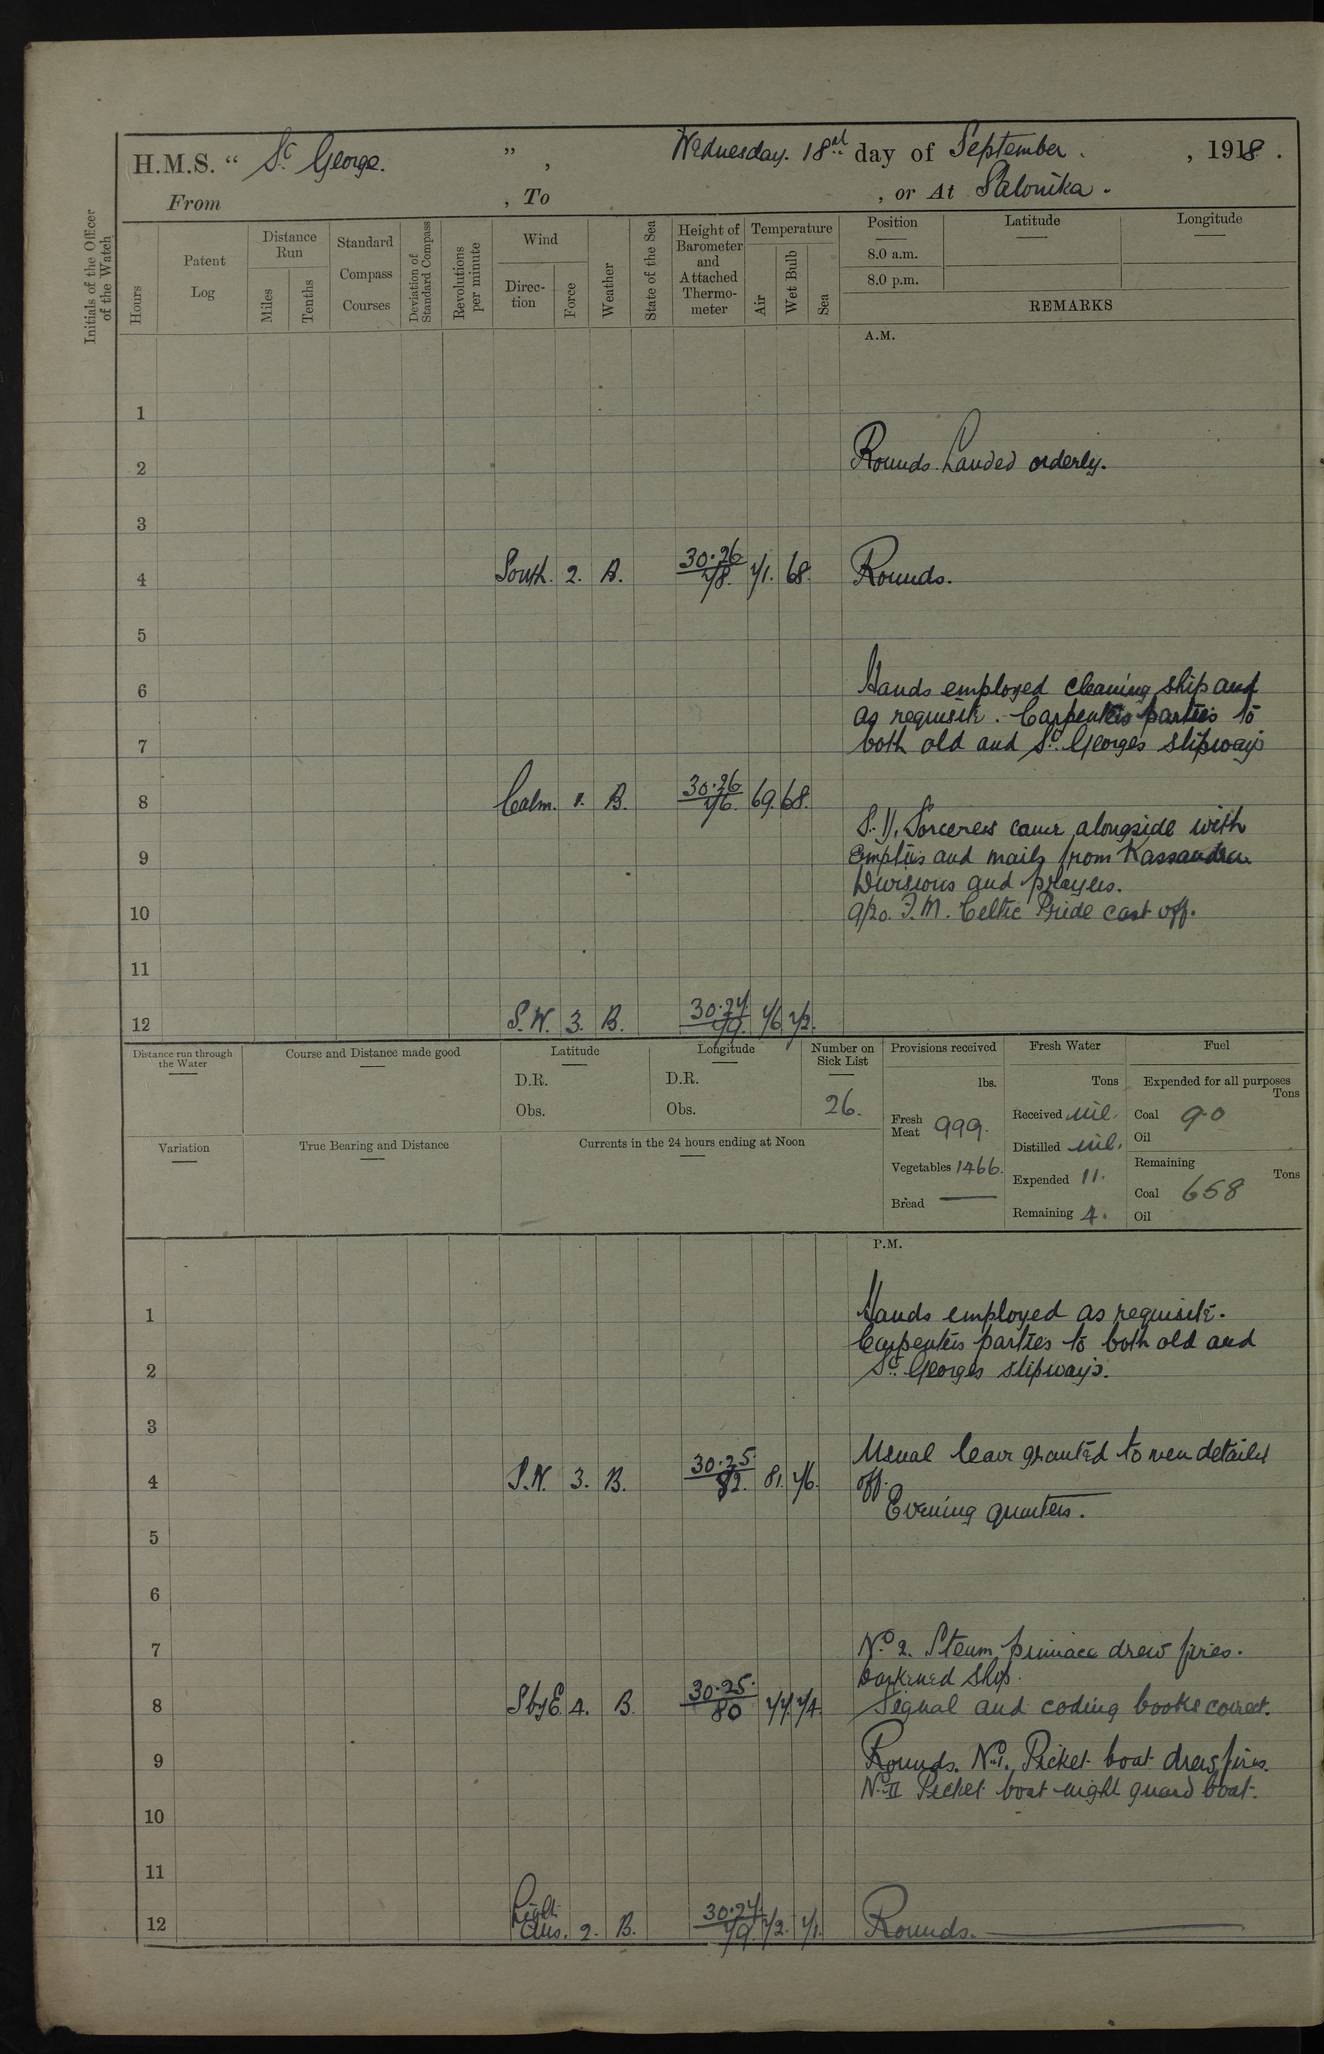 H.M.S. " St. George. " , Wednesday. 18th day of September. , 1918.
From , To , or At Salonika.
Initials of the Officer of the Watch
Hours
Patent Log
Distance Run
Miles
Tenths
Standard Compass Courses
Deviation of Standard Compass
Revolutions per minute
Wind
Direction
Force
Weather
State of the Sea
Height of Barometer and Attached Thermometer
Temperature
Air
Wet Bulb
Sea
Position Latitude Longitude
8.0 a.m.
8.0 p.m.
REMARKS
A.M.
1
2 Rounds. Landed orderly.
3
4 South. 2. B. 30.26 78. 71. 68. Rounds.
5
6 Hands employed cleaning ship and
as requisite. Carpenters parties to
7 both old and St. Georges slipways
8 Calm. 1. B. 30.26 76. 69. 68.
Sorceress came alongside with
9 empties and mails from Kassandra.
Divisions and prayers.
10 9/20. Celtic Pride cast off.
11
12 S.W. 3. B. 30.27. 79. 76 72.
Distance run through the Water
Course and Distance made good
Latitude
D.R.
Obs.
Longitude
D.R.
Obs.
Number on Sick List
26.
Provisions received
lbs.
Fresh Meat 999.
Vegetables 1466.
Bread —
Fresh Water
Tons
Received nil.
Distilled nil.
Expended 11.
Remaining 4.
Fuel
Expended for all purposes
Tons
Coal 9.0
Oil
Remaining
Tons
Coal 658
Oil
Variation
True Bearing and Distance
Currents in the 24 hours ending at Noon
P.M.
1 Hands employed as requisite.
Carpenters parties to both old and
2 St. Georges slipways.
3
Usual leave granted to men detailed
4 S.W. 3. B. 30.25. 82. 81. 76. off.
Evening quarters.
5
6
7 No. 2. Steam pinnace drew fires.
Darkened ship.
8 S by E. 4. B. 30.25. 80 77. 74. Signal and coding books correct.
9 Rounds. No. 1. Picket boat drew fires.
No. II Picket boat night guard boat.
10
11
12 Light Airs. 2. B. 30.27. 79. 72. 71. Rounds.